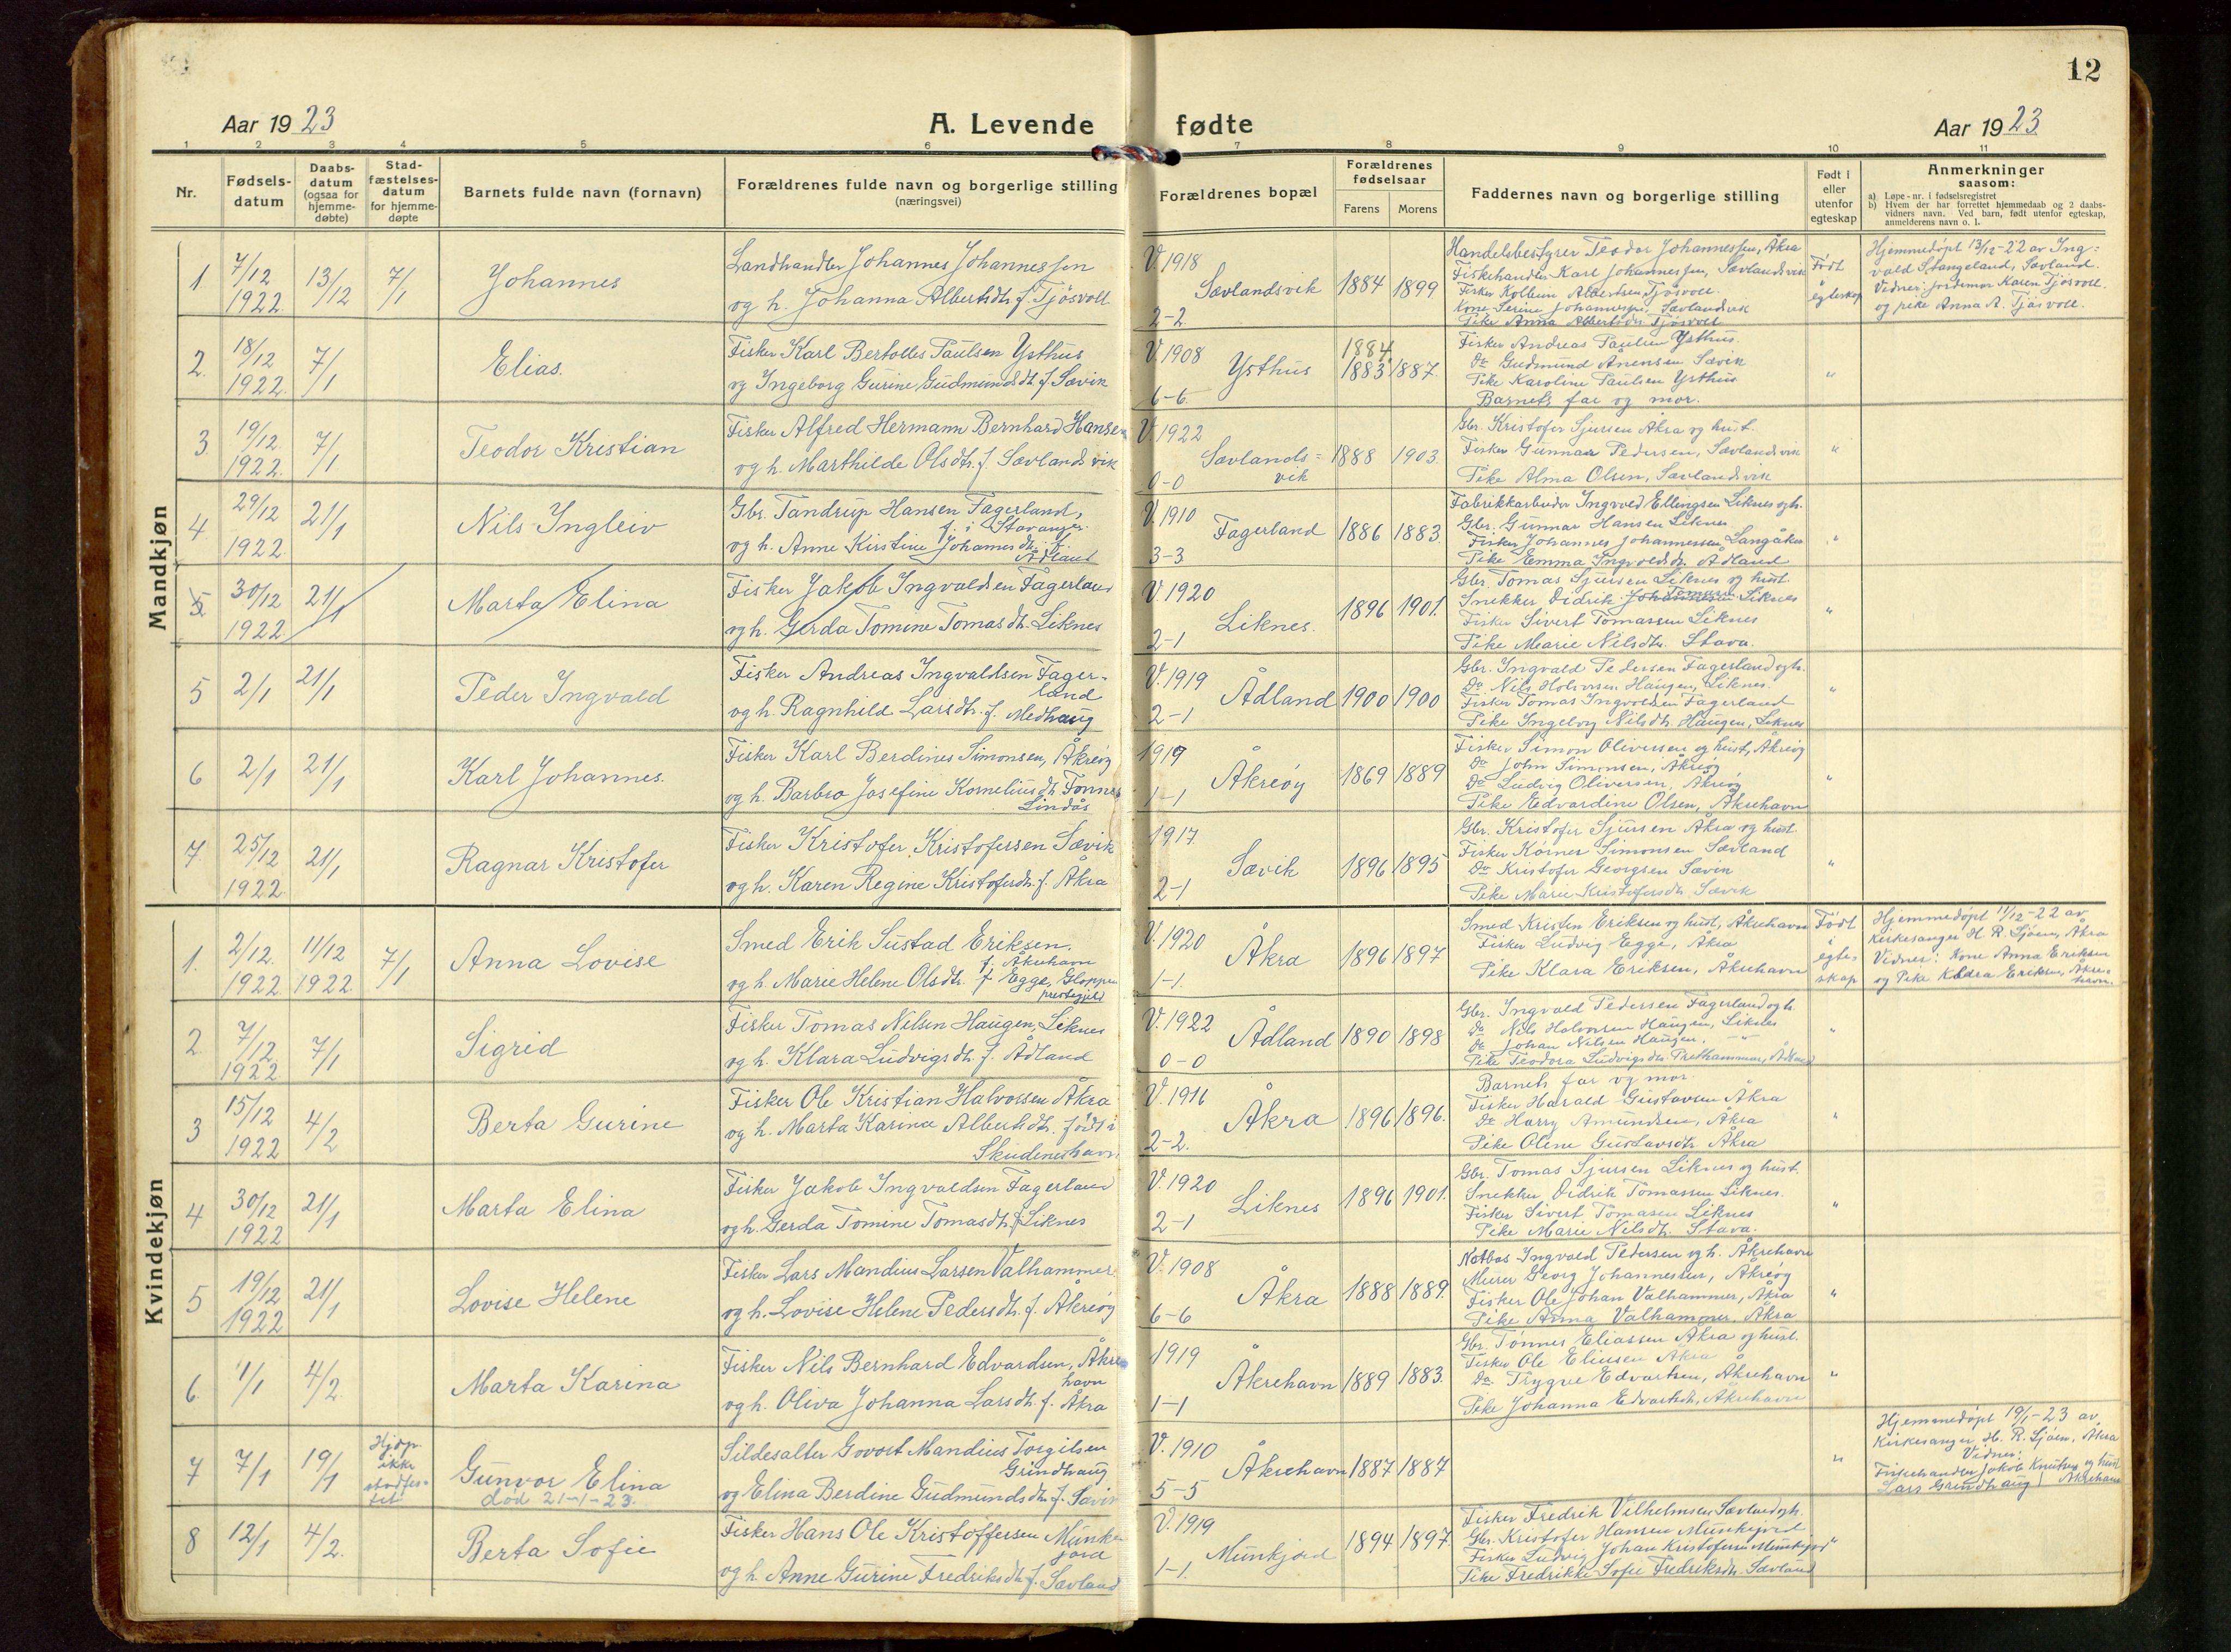 12
Aar 1923
A. Levende fødte
Aar 1923
1 2 3 4 5 6 7 8 9 10 11
Nr.
Fødsels-
datum
Daabs-
datum
(ogsaa for
hjemme-
døbte)
Stad-
fæstelses-
datum
for hjemme-
døpte
Barnets fulde navn (fornavn)
Forældrenes fulde navn og borgerlige stilling
(næringsvei)
Forældrenes bopæl
Forældrenes
fødselsaar
Farens
Morens
Faddernes navn og borgerlige stilling
Født i
eller
utenfor
egteskap
Anmerkninger
saasom:
a) Løpe-nr. i fødselsregistret
b) Hvem der har forrettet hjemmedaab og 2 daabs-
vidners navn. Ved barn, født utenfor egteskap,
anmelderens navn o. l.
Mandkjøn
1
7/12
1922
13/12
7/1
Johannes
Landhandler Johannes Johannessen
og h. Johanna Albertsdtr. f. Tjösvoll
V. 1918
Sævlandsvik
2-2
1884
1899
Handelsbestyrer Teodor Johannessen, Åkra
Fiskehandler Karl Johannessen, Sævlandsvik
Fisker Kolbein Albertsen Tjösvoll
Kone Serine Johannessen, Sævlandsvik
Pike Anna Albertsdtr. Tjösvoll
Født
i
egteskap
Hjemmedöpt 13/12-22 av Ing=
vald Stangeland, Sævland.
Vidner: jordmor Karen Tjösvoll
og pike Anna A. Tjösvoll.
2.
18/12
1922.
7/1
Elias.
Fisker Karl Bertolles Paulsen Ysthus
og Ingeborg Gurine Gudmundsdt. f. Sævik
V. 1908
Ysthus
6-6.
1884
1883
1887.
Fisker Andreas Paulsen Ysthus.
Do Gudmund Anensen Sævik
Pike Karoline Paulsen Ysthus
Barnets far og mor.
"
3.
19/12.
1922.
7/1
Teodor Kristian
Fisker Alfred Hermann Bernhard Hansen
og h. Marthilde Olsdtr. f. Sævlandsvik
V. 1922
Sævlands=
vik
0-0
1888
1903.
Gbr. Kristofer Sjursen Åkra og hust.
Fisker Gunnar Pedersen, Sævlandsvik
Pike Alma Olsen, Sævlandsvik
"
4.
29/12
1922.
21/1
Nils Ingleiv
Gbr. Tandrup Hansen Fagerland,
f. i Stavanger.
og h. Anne Kirstine Johannesdtr. f.
Ådland
V. 1910
Fagerland
3-3
1886
1883.
Fabrikkarbeider Ingvald Ellingsen Liknes og h.
Gbr. Gunnar Hansen Liknes
Fisker Johannes Johannessen Langåker
Pike Emma Ingvaldsdtr. Ådland
"
5.
30/12
1922.
21/1
Marta Elina
Fisker Jakob Ingvaldsen Fagerland
og h. Gerda Tomine Tomasdtr. Liknes
V. 1920
Liknes.
2-1
1896
1901.
Gbr. Tomas Sjursen Liknes og hust.
Snekker Didrik Johannessen Tomassen Liknes
Fisker Sivert Tomassen Liknes
Pike Marie Nilsdtr. Stava.
"
5
2/1
21/1
Peder Ingvald
Fisker Andreas Ingvaldsen Fager-
land
og h. Ragnhild Larsdtr. f. Medhaug
V. 1919
Ådland
2-1
1900
1900
Gbr. Ingvald Pedersen Fagerland og h.
Do Nils Holvorsen Haugen, Liknes
Fisker Tomas Ingvaldsen Fagerland
Pike Ingeborg Nilsdtr. Haugen, Liknes
"
6
2/1
21/1
Karl Johannes.
Fisker Karl Berdines Simonsen, Åkreöy
og h. Barbro Josefine Kornelius dt. Fonnes
Lindås
1919
Åkreöy
1-1
1869
1889
Fisker Simon Oliversen og hust, Åkreöy
Do John Simonsen, Åkreöy
Do Ludvig Oliversen, Åkreöy
Pike Edvardine Olsen, Åkrehavn
"
7.
25/12
1922.
21/1
Ragnar Kristofer
Fisker Kristofer Kristofersen Sævik
og h. Karen Regine Kristofersdtr. f. Åkra
1917.
Sævik
2-1
1896
1895
Gbr. Kristofer Sjursen Åkra og hust.
Fisker Körner Simonsen Sævland
Do Kristofer Georgsen Sævik
Pike Marie Kristofersdtr. Sævik
"
Kvindekjøn
1.
2/12.
1922
11/12
1922
7/1
Anna Lovise
Smed Erik Sustad Eriksen.
f. Åkrehavn
og h. Marie Helene Olsdtr. f. Egge, Gloppen
prestegjeld
V. 1920
Åkra
1-1.
1896
1897
Smed Kristen Eriksen og hust, Åkrehavn
Fisker Ludvig Egge, Åkra
Pike Klara Eriksen, Åkrehavn
Född
i
egte-
skap
Hjemmedöpt 11/12-22 av
Kirkesanger H. R. Sjöen, Åkra
Vidner: Kone Anna Eriksen
og Pike Klara Eriksen, Åkre-
havn.
2.
7/12
1922
7/1
Sigrid
Fisker Tomas Nilsen Haugen, Liknes
og h. Klara Ludvigsdtr. f. Ådland
V. 1922
Ådland
0-0
1890
1898
Gbr. Ingvald Pedersen Fagerland og h.
Do Nils Holvorsen Haugen, Liknes
Do Johan Nilsen Haugen. -"-
Pike Teodora Ludvigsdtr. Trethammer, Ådland
"
3
15/12
1922
4/2
Berta Gurine
Fisker Ole Kristian Halvorsen Åkra
og h. Marta Karina Albertsdtr. född i
Skudeneshavn
V. 1916
Åkra
2-2.
1896
1896.
Barnets far og mor.
Fisker Harald Gustavsen Åkra
Do Harry Amundsen, Åkra
Pike Olene Gustavsdtr. Åkra
"
4
30/12
1922
21/1
Marta Elina
Fisker Jakob Ingvaldsen Fagerland
og h. Gerda Tomine Tomasdtr. f. Liknes
V. 1920
Liknes
2-1
1896
1901.
Gbr. Tomas Sjursen Liknes og hust.
Snekker Didrik Tomassen Liknes.
Fisker Sivert Tomasen Liknes
Pike Marie Nilsdtr. Stava.
"
5
19/12
1922
21/1
Lovise Helene
Fisker Lars Mandius Larsen Valhammer
og h. Lovise Helene Pedersdtr. f. Åkreöy
V. 1908
Åkra
6-6
1888
1889.
Notbas Ingvald Pedersen og h. Åkrehavn
Murer Georg Johannessen, Åkreöy
Fisker Ole Johan Valhammer, Åkra
Pike Anna Valhammer, Åkra
"
6.
1/1
4/2.
Marta Karina
Fisker Nils Bernhard Edvardsen, Åkre
havn
og h. Oliva Johanna Larsdtr. f. Åkra
1919
Åkrehavn
1-1
1889
1883.
Gbr. Tönnes Eliassen Åkra og hust.
Fisker Ole Eliesen Åkra
Do Trygve Edvartsen, Åkrehavn
Pike Johanna Edvartsdt., Åkrehavn
"
7
7/1
19/1
Hjdp.
ikke
stadfes-
tet
Gunvor Elina
död 21-1-23.
Sildesalter Govert Mandius Torgilsen
Grindhaug
og Elina Berdine Gudmundsdtr. f. Sævik
V. 1910
Åkrehavn
5-5
1887
1887
"
Hjemmedöpt 19/1-23 av
Kirkesanger H. R. Sjöen, Åkra
Vidner:
Fiskehandler Jakob Knutsen og hust
Lars Grindhaug | Åkrehavn
8
12/1
4/2.
Berta Sofie
Fisker Hans Ole Kristoffersen Munke
jord
og h. Anne Gurine Fredriksdtr. f. Sævland
V. 1919
Munkjord
1-1.
1894
1897.
Fisker Fredrik Vilhelmsen Sævland og h.
Gbr. Kristofer Hansen Munkejord
Fisker Ludvig Johan Kristofersen Munkejord
Pike Fredrikke Sofie Fredriksdtr. Sævland
"